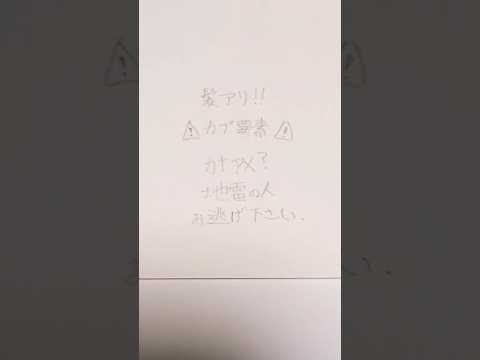 髪アリ!!
⚠カプ要素⚠
カナアメ?
地雷の人
お逃げ下さい.